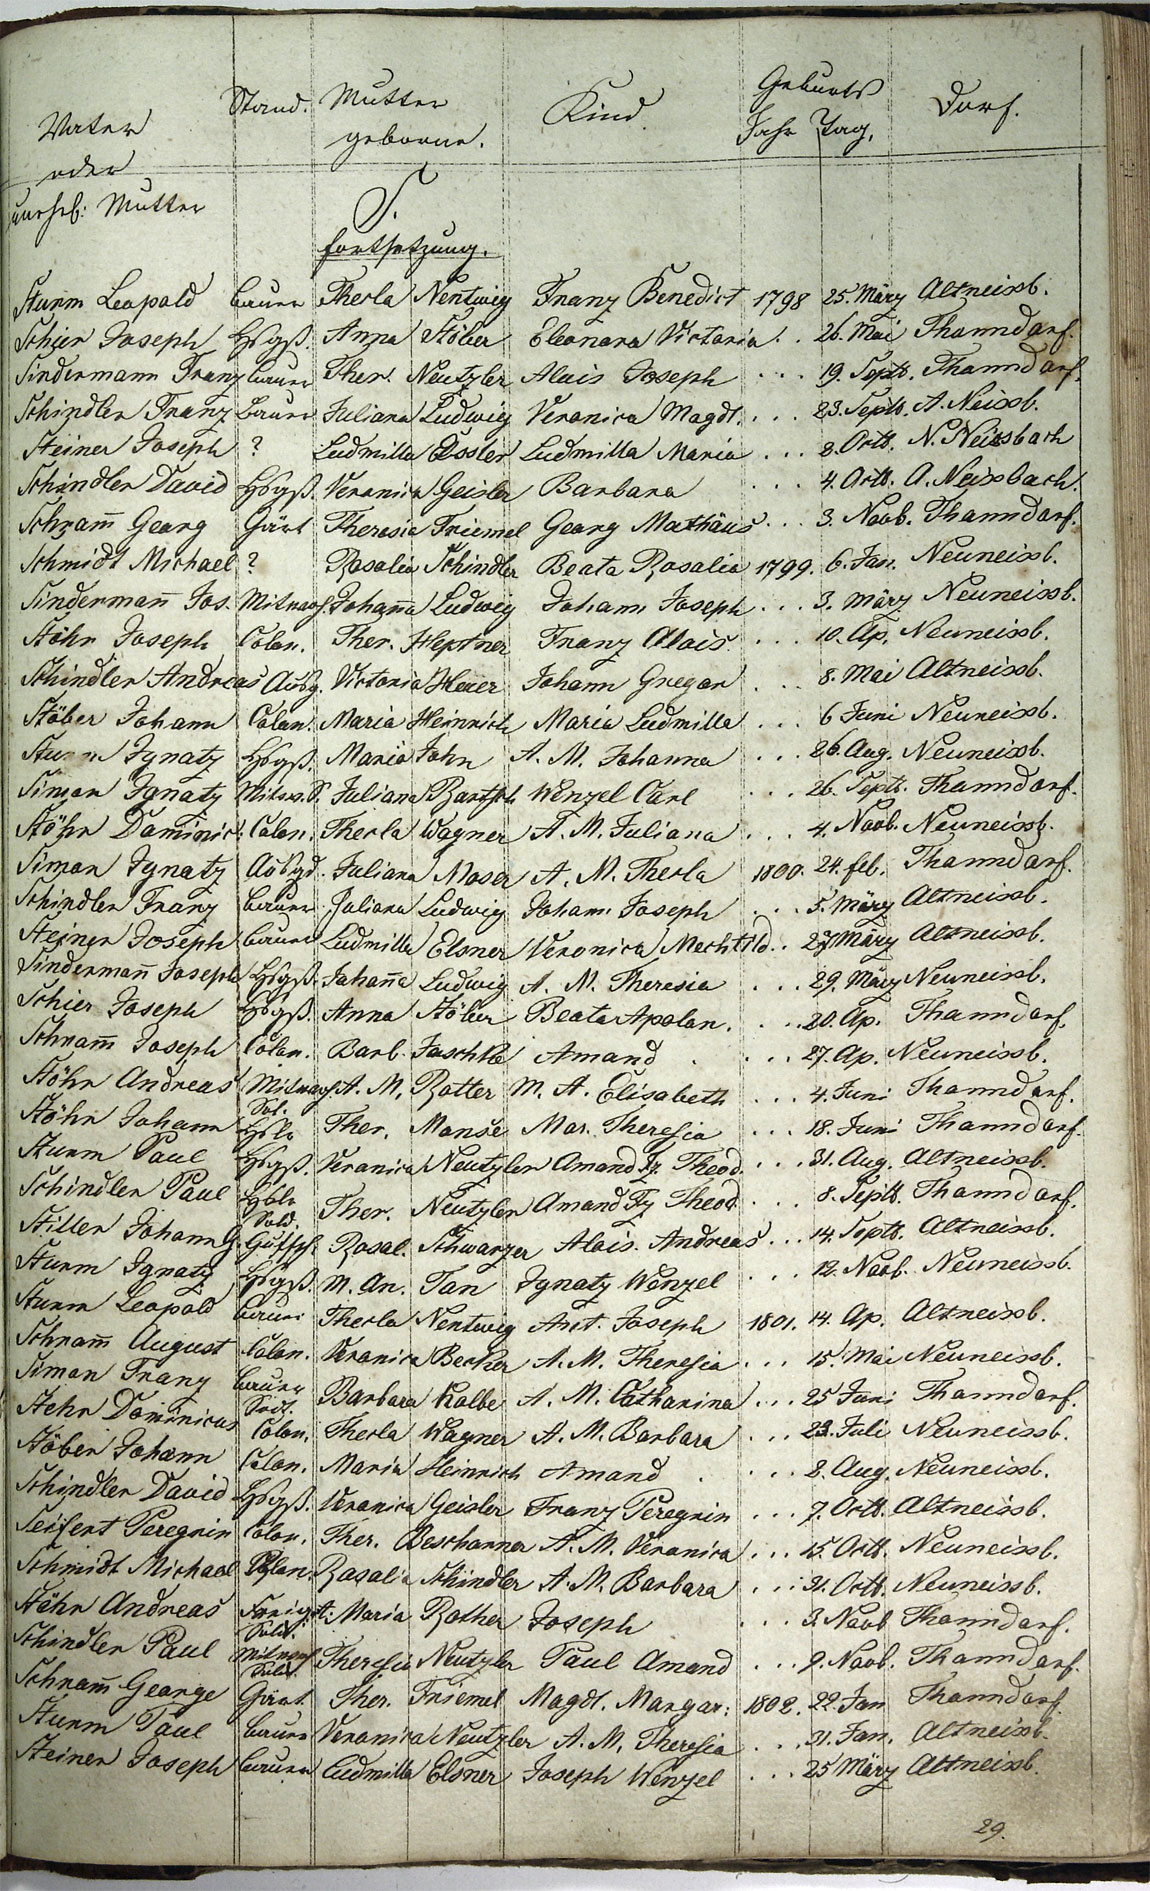 Vater
oder
unehl. Mutter
Stand.
Mutter
geborne.
Kind
Geburts
Jahr Tag.
Dorf.
S.
Fortsetzung.
Sturm Leopold Bauer Thecla Nentwig Franz Benedict 1798 25. März Altneissb.
Schier Joseph Hsgß. Anna Stöber Eleonora Victoria . . 26. Mai Thanndorf.
Sindermann Franz Bauer Ther. Neutzler Alois Joseph . . . 19. Septb. Thanndorf.
Schindler Franz Bauer Juliana Ludwig Veronica Magdl. . . . 23. Septb. A. Neissb.
Steiner Joseph ? Ludmilla Elssler Ludmilla Maria . . . 8. Octb. N. Neissbach
Schindler David Hsgß. Veronica Geisler Barbara . . . 4. Octb. A. Neissbach.
Schram̄ Georg Gärt Theresia Friemel Georg Mathäus . . . 3. Novb. Thanndorf.
Schmidt Michael ? Rosalia Schindler Beata Rosalia 1799. 6. Jan. Neuneissb.
Sinderman̄ Jos. Johan̄a Ludwig Johann Joseph . . . 3. März Neuneissb.
Stöhr Joseph Colon. Ther. Heptner Franz Alois . . . 10. Ap. Neuneissb.
Schindler Andreas Ausg. Victoria Johann Gregor . . . 8. Mai Altneissb.
Stöber Johann Colon. Maria Heinrich Maria Ludmilla . . . 6 Juni Neuneissb.
Sturm Ignatz Hsgß. Maria John A. M. Johanna . . . 26. Aug. Neuneissb.
Simon Ignatz Juliana Bartsch Wenzel Carl . . . 26. Septb. Thanndorf.
Stöhr Dominic. Colon. Thecla Wagner A. M. Juliana . . . 4. Novb. Neuneissb.
Simon Ignatz Juliana Moser A. M. Thecla 1800. 24. Feb. Thanndorf.
Schindler Franz Bauer Juliana Ludwig Johann Joseph . . . 5. März Altneissb.
Steiner Joseph Bauer Ludmilla Elsner Veronica Mechtild . . 23 März Altneissb.
Sinderman̄ Joseph Hsgß. Johan̄a Ludwig A. M. Theresia . . . 29. März Neuneissb.
Schier Joseph Hsgß. Anna Stöber Beata Apolon. . . . 20. Ap. Thanndorf.
Schram̄ Joseph Colon. Barb. Jaschke Amand . . . . 27. Ap. Neuneissb.
Stöhr Andreas A. M. Rotter M. A. Elisabeth . . . 4. Juni Thanndorf.
Stöhr Johann Ther. Manse Mar. Theresia . . . 18. Juni Thanndorf.
Sturm Paul Hsgß. Veronica Neutzler Amand Fz. Theod. . . . 31. Aug. Altneissb.
Schindler Paul Sold. Ther. Neutzler Amand Fz Theod. . . . 8. Septb. Thanndorf.
Stiller Johann G. Rosal. Schwarzer Alois Andreas . . . 14. Septb. Altneissb.
Sturm Ignatz Hsgß. M. An. Tan Ignatz Wenzel . . . 12. Novb. Neuneissb.
Sturm Leopold Bauer Thecla Nentwig Ant. Joseph 1801. 14. Ap. Altneissb.
Schram̄ August Colon. Veronica Becher A. M. Theresia . . . 15. Mai Neuneissb.
Simon Franz Bauer Barbara Kolbe A. M. Catharina . . . 25 Juni Thanndorf.
Stehr Dominicus Colon. Thecla Wagner A. M. Barbara . . . 23. Juli Neuneissb.
Stöber Johann Colon. Maria Heinrich Amand . . . . 8. Aug. Neuneissb.
Schindler David Hsgß. Veronica Geisler Franz Peregrin . . . 7. Octb. Altneissb.
Seifert Peregrin Colon. Ther. Beschorner A. M. Veronica . . . 15. Octb. Neuneissb.
Schmidt Michael Colon. Rosalia Schindler A. M. Barbara . . . 31. Octb. Neuneissb.
Stöhr Andreas A. Maria Rother Joseph . . 3. Novb Thanndorf.
Schindler Paul Theresia Neutzler Paul Amand . . . 9. Novb. Thanndorf.
Schram̄ George Gärt. Ther. Friemel Magdl. Margar: 1802. 22. Jan Thanndorf.
Sturm Paul Bauer Veronica Neutzler A. M. Theresia . . . 31. Jan. Altneissb.
Steiner Joseph Bauer Ludmilla Elsner Joseph Wenzel . . . 25 März Altneissb.
29.